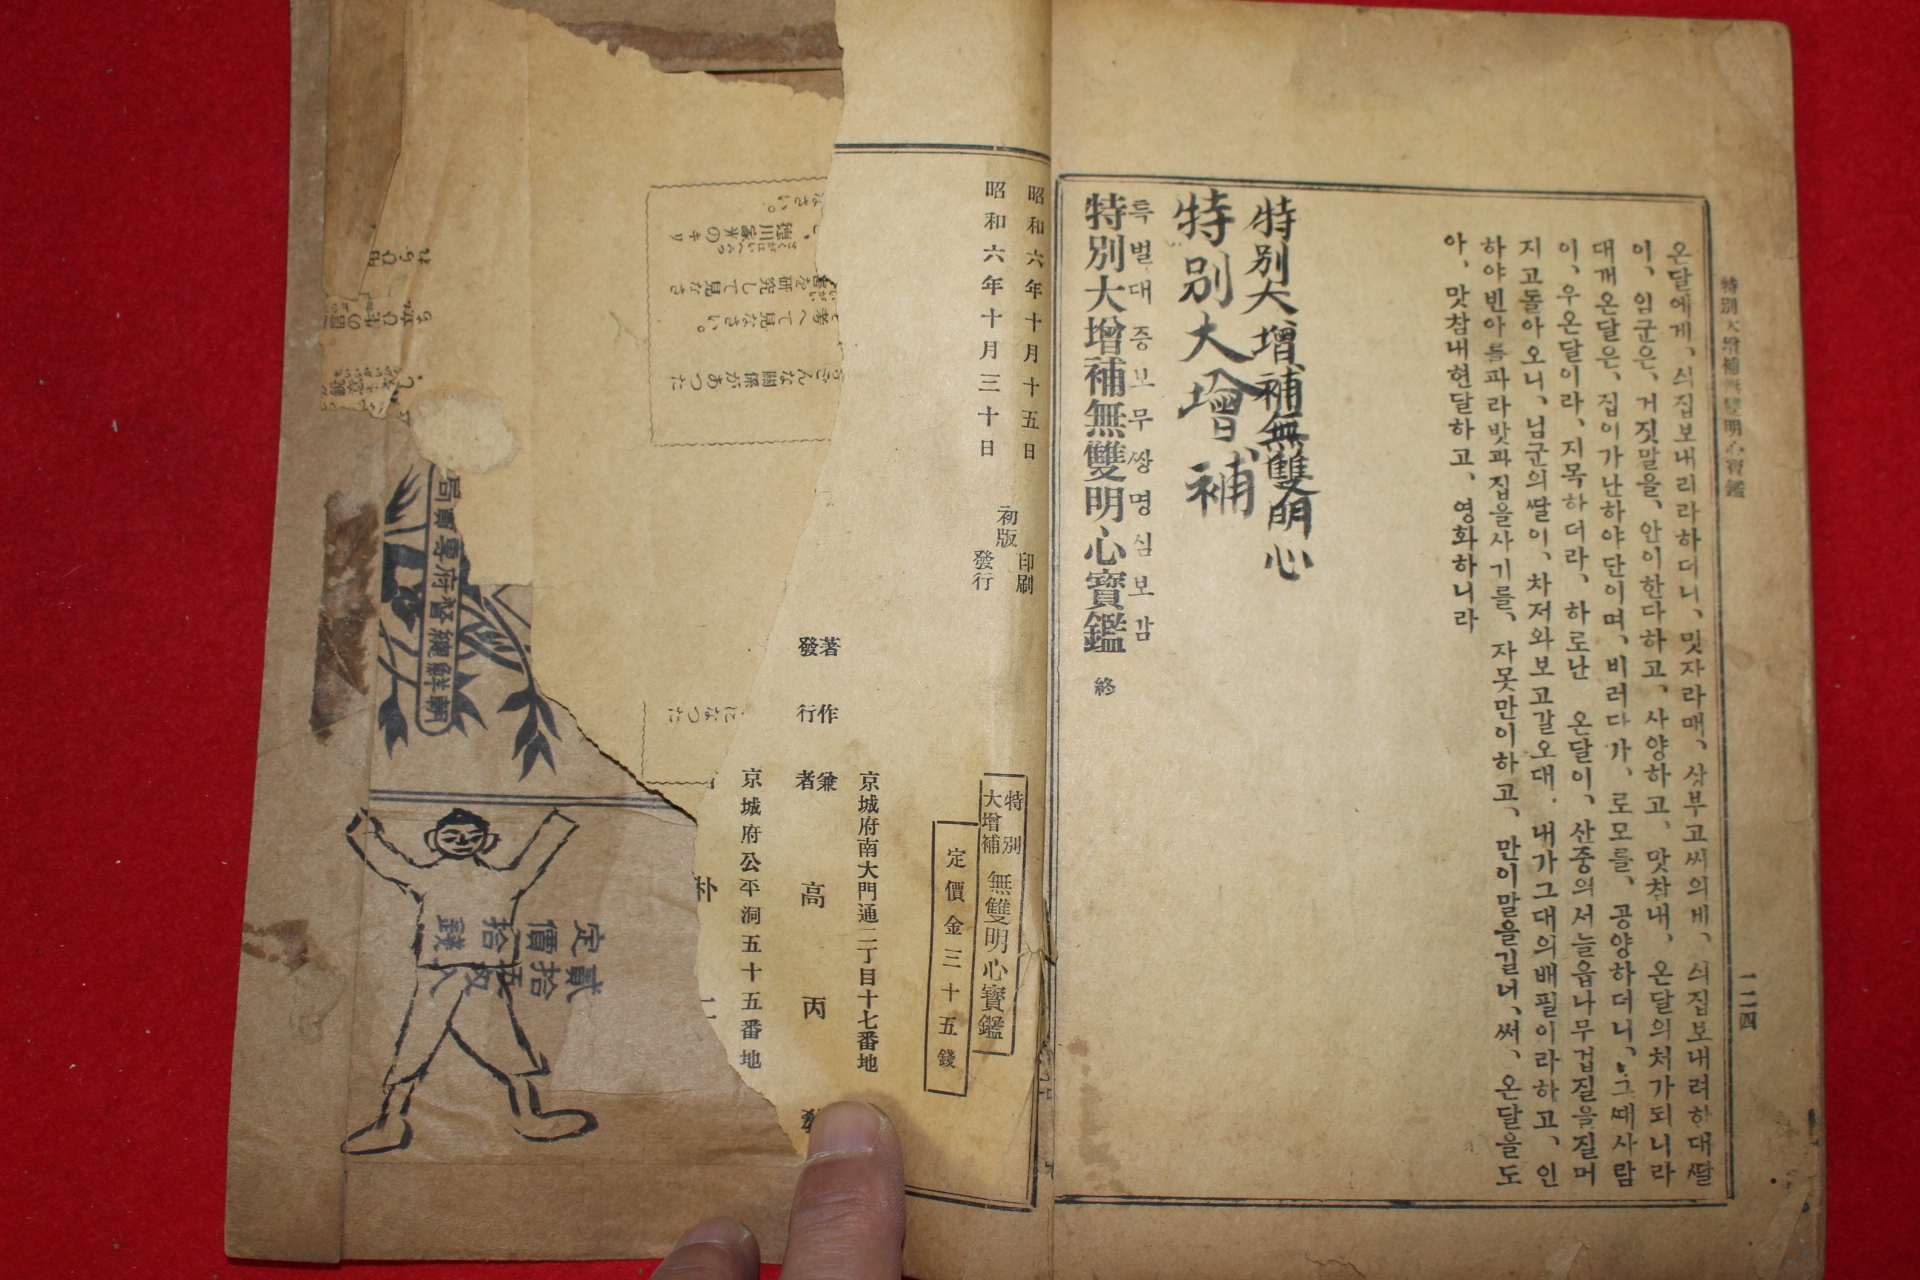 特別大增補無雙明心寶鑑
一二四
온달에게、싀집보내리라하더니、밋자라매、상부고씨의비、싀집보내려하대쌀
이、임군은、거짓말을、안이한다하고、사양하고、맛참내、온달의처가되니라
대개온달은、집이가난하야단이며、비러다가、로모를、공양하더니、그떼사람
이、우온달이라、지목하더라、하로난 온달이、산중의서늘읍나무겁질을질머
지고돌아오니、님군의쌀이、차저와보고갈오대、내가그대의배필이라하고、인
하야빈아를파라밧과집을사기를、자못만이하고、만이말을길너、써、온달을도
아、맛참내현달하고、영화하니라
特別大增補無雙明心
特別大增補
특별대증보무쌍명심보감
特別大增補無雙明心寶鑑 終
昭和六年十月十五日
昭和六年十月三十日
初版
印刷
發行
特別
大增補
無雙明心寶鑑
定價金三十五錢
京城府南大門通二丁目十七番地
著作兼
發行者
高丙
京城府公平洞五十五番地
朴
なさい。
徳川家米のキリ
を研究して見なさ
考へて見なさい。
どんな關係があつた
になつた
朝鮮總督府專賣局
定價拾錢
貳拾五